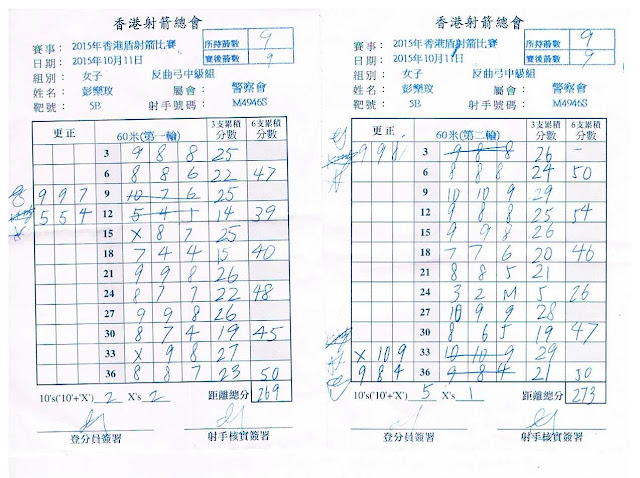 香港射箭總會
賽事： 2015年香港盾射箭比賽 所持箭數 9
日期： 2015年10月11日 賽後箭數 9
組別： 女子 反曲弓中級組
姓名： 彭樂玫 屬會： 警察會
靶號： 5B 射手號碼： M4946S
更正 60米(第一輪) 3支累積分數 6支累積分數
3 9 8 8 25
6 8 8 6 22 47
9 9 7 9 10 7 6 25
5 5 4 12 5 4 1 14 39
15 X 8 7 25
18 7 4 4 15 40
21 9 9 8 26
24 8 7 7 22 48
27 9 9 8 26
30 8 7 4 19 45
33 X 9 8 27
36 8 8 7 23 50
10's('10'+'X') 2 X's 2 距離總分 269
登分員簽署 射手核實簽署
香港射箭總會
賽事： 2015年香港盾射箭比賽 所持箭數 9
日期： 2015年10月11日 賽後箭數 9
組別： 女子 反曲弓中級組
姓名： 彭樂玫 屬會： 警察會
靶號： 5B 射手號碼： M4946S
更正 60米(第二輪) 3支累積分數 6支累積分數
9 9 8 3 9 8 8 26 -
6 8 8 8 24 50
9 10 10 9 29
12 9 8 8 25 54
15 9 9 8 26
18 7 7 6 20 46
21 8 8 5 21
24 3 2 M 5 26
27 10 9 9 28
30 8 6 5 19 47
X 10 9 33 10 10 9 29
9 8 4 36 9 8 4 21 50
10's('10'+'X') 5 X's 1 距離總分 273
登分員簽署 射手核實簽署